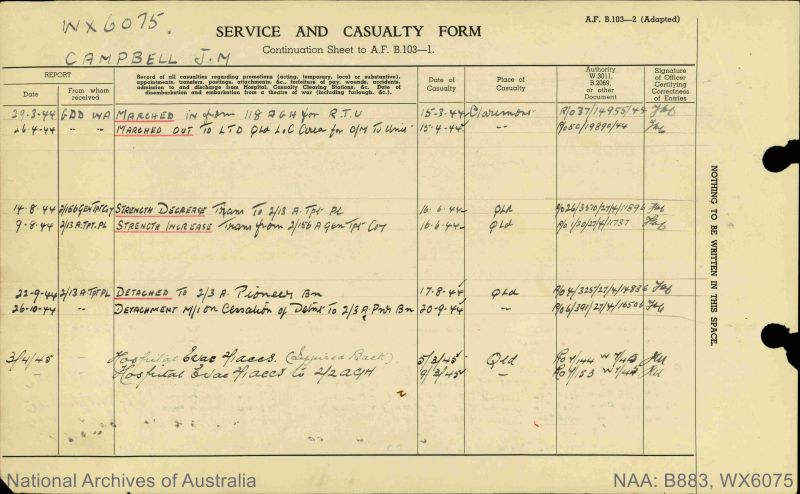 WX6075.
CAMPBELL J.M
A.F. B.103—2 (Adapted)
SERVICE AND CASUALTY FORM
Continuation Sheet to A.F. B.103—1.
REPORT
Date
From whom received
Record of all casualties regarding promotions (acting, temporary, local or substantive), appointments, transfers, postings, attachments, &c., forfeiture of pay, wounds, accidents, admission to and discharge from Hospital, Casualty Clearing Stations, &c. Date of disembarkation and embarkation from a theatre of war (including furlough, &c.).
Date of Casualty
Place of Casualty
Authority W.3011, B.2069, or other Document
Signature of Officer Certifying Correctness of Entries
29-3-44 GDD WA MARCHED in from 118 AGH for R.T.U 15-3-44 Claremont R/O37/14955/44
26-4-44 " " MARCHED OUT To LTD Qld L of C Area for O/M To Unit 15-4-44 " R/O50/19890/44
14-8-44 2/156 GEN TPT COY STRENGTH DECREASE Trans To 2/13 A. Tpt Pl 16-6-44 QLD
9-8-44 2/13 A.TPT.PL STRENGTH INCREASE Trans from 2/156 A Gen Tpt Coy 16-6-44 QLD
22-9-44 2/13 A.TPT PL DETACHED TO 2/3 A. Pioneer Bn 17-8-44 QLd
26-10-44 " DETACHMENT M/I on Cessation of Detmt To 2/3 A Pnr Bn 20-9-44 "
3/4/45 Hospital Evac 2/1 accs. (Injured Back) 5/3/45 Qld
Hospital Evac 2/1 accs to 2/2 AGH 9/3/45 "
NOTHING TO BE WRITTEN IN THIS SPACE.
National Archives of Australia
NAA: B883, WX6075